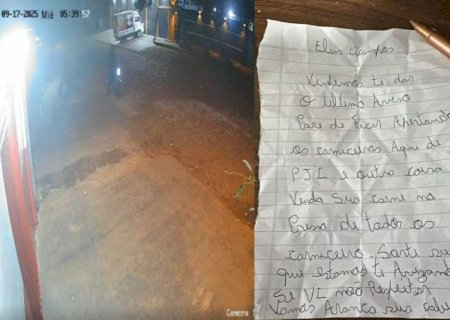 09-17-2025 Mié 05:39:57
Camera
Elias Ocampos
Vindimos te das
O Ultimo Aviso
Pare de Ficar Apertando
os carniceiros Aque de
PJC e outra coisa
Venda Sua carni na
de todos os
carniceiro, su
que estamos ti Avizando
Si VC não Respeitar
Vamos Aranca sua